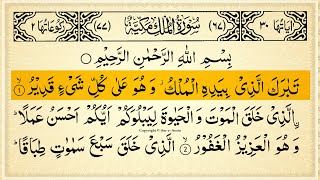 اٰيَاتُهَا ٣٠ (٦٧) سُوْرَةُ الْمُلْكِ مَكِّيَّةٌ (٧٧) رُكُوْعَاتُهَا ٢
بِسْمِ اللّٰهِ الرَّحْمٰنِ الرَّحِيْمِ
تَبٰرَكَ الَّذِىْ بِيَدِهِ الْمُلْكُ وَهُوَ عَلٰى كُلِّ شَىْءٍ قَدِيْرُ ۙ﴿١﴾
اۨلَّذِىْ خَلَقَ الْمَوْتَ وَالْحَيٰوةَ لِيَبْلُوَكُمْ اَيُّكُمْ اَحْسَنُ عَمَلًا ؕ
وَهُوَ الْعَزِيْزُ الْغَفُوْرُ ۙ﴿٢﴾ الَّذِىْ خَلَقَ سَبْعَ سَمٰوٰتٍ طِبَاقًا ؕ